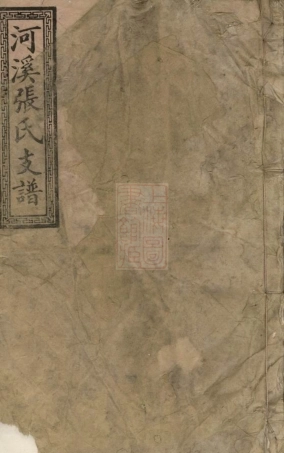 河溪張氏支譜